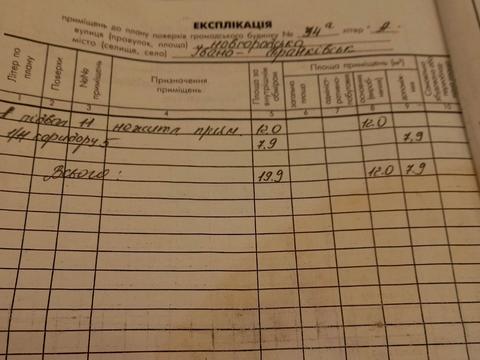 ЕКСПЛІКАЦІЯ
приміщень до плану поверхів громадського будинку № 34а літер "А"
вулиця (провулок, площа) Новгородська
місто (селище, село) Івано-Франківськ
Літер по плану
Поверхи
№№ приміщень
Призначення приміщень
Площа за внутрішнім обміром
Площа приміщень (м²)
загальна площа
основна
1 2 3 4 5 6 7 8 9 10
А підвал 11 нежитл. прим. 12.0 12.0
1/4 коридору 5 7,9 7,9
Всього: 19.9 12.0 7.9